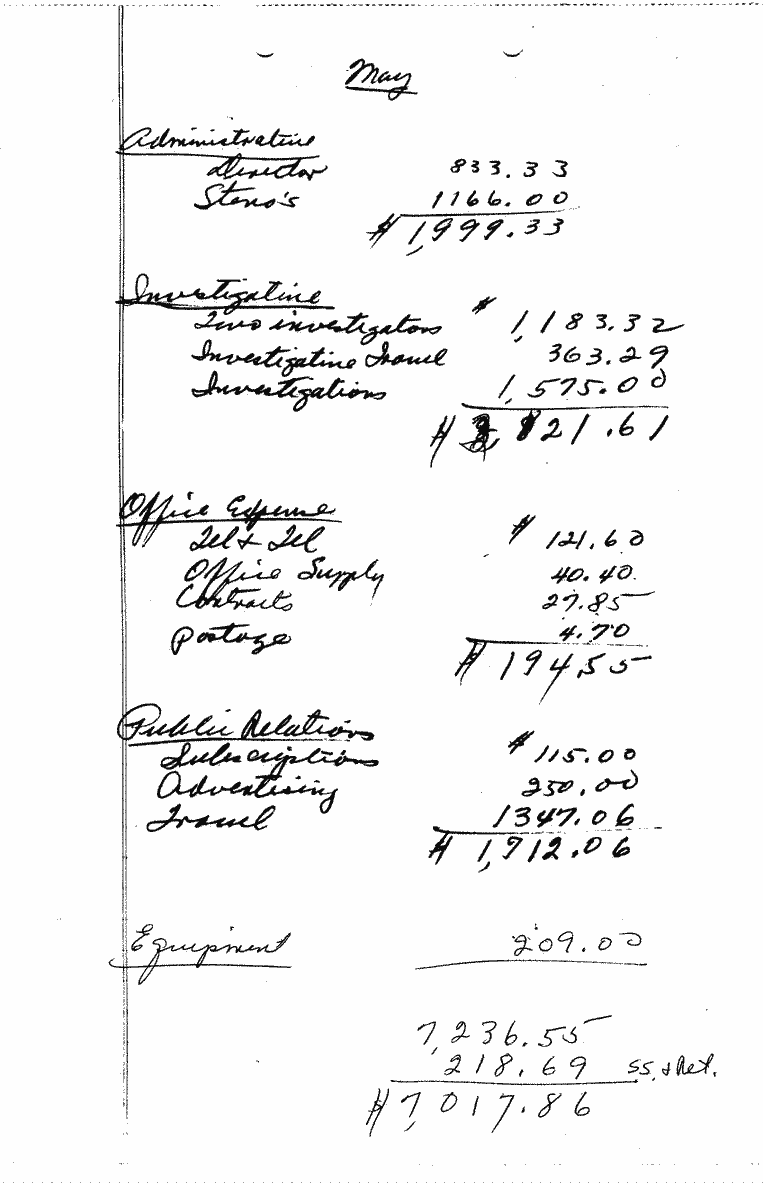 May
Administrative
Director 833.33
Steno's 1166.00
$ 1,999.33
Investigative
Two investigators $ 1,183.32
Investigative Travel 363.29
Investigations 1,575.00
$ 3,121.61
Office Expense
Tel & Tel $ 121.60
Office Supply 40.40
Contracts 27.85
Postage 4.70
$ 194.55
Public Relations
Subscriptions $ 115.00
Advertising 250.00
Travel 1347.06
$ 1,712.06
Equipment 209.00
7,236.55
218.69 SS. & Ret.
$ 7,017.86